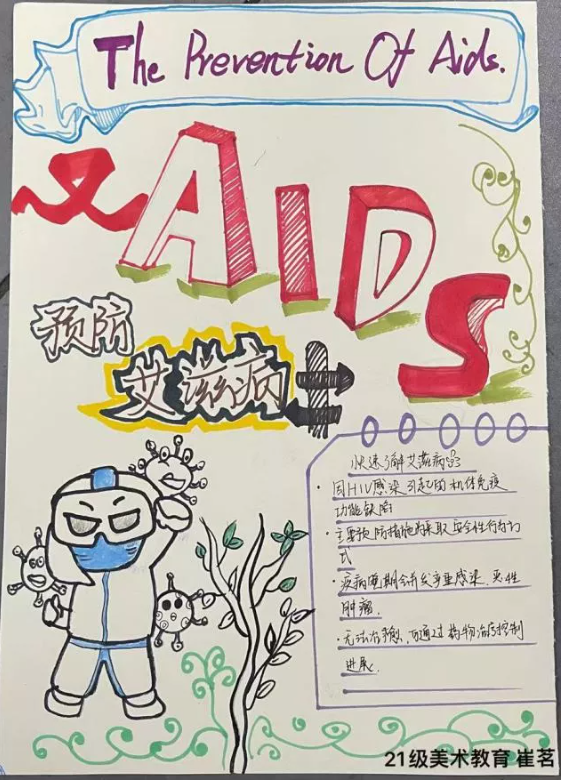 The Prevention Of Aids.
AIDS
预防
艾滋病
快速了解艾滋病
· 因HIV感染引起的机体免疫
功能缺陷
· 主要预防措施为采取安全性行为方
式
· 疾病晚期会并发严重感染、恶性
肿瘤.
· 无法治愈,可通过药物治疗控制
进展.
21级美术教育 崔茗